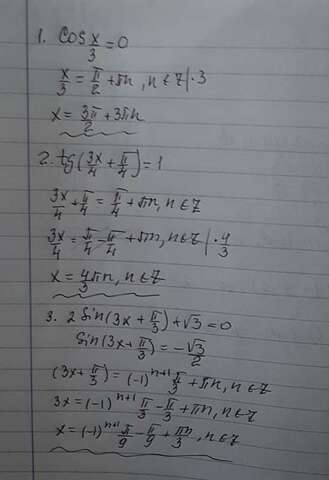 1. Cos x/3 = 0
x/3 = π/2 + πn, n ∈ Z | · 3
x = 3π/2 + 3πn
2. tg(3x/4 + π/4) = 1
3x/4 + π/4 = π/4 + πn, n ∈ Z
3x/4 = π/4 - π/4 + πn, n ∈ Z | · 4/3
x = 4/3 πn, n ∈ Z
3. 2 Sin(3x + π/3) + √3 = 0
Sin(3x + π/3) = -√3/2
(3x + π/3) = (-1)ⁿ⁺¹ π/3 + πn, n ∈ Z
3x = (-1)ⁿ⁺¹ π/3 - π/3 + πn, n ∈ Z
x = (-1)ⁿ⁺¹ π/9 - π/9 + πn/3, n ∈ Z